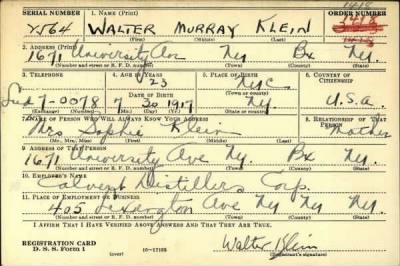 SERIAL NUMBER 1. NAME (Print) ORDER NUMBER
1418
Y564 WALTER MURRAY KLEIN 1418
(First) (Middle) (Last)
2. ADDRESS (Print)
1671 University Ave Ny. Bx Ny.
(Number and street or R. F. D. number) (Town) (County) (State)
3. TELEPHONE 4. AGE IN YEARS 5. PLACE OF BIRTH 6. COUNTRY OF CITIZENSHIP
23 Nyc
(Town or county)
7-0078 DATE OF BIRTH
7 30 1917 Ny. U.S.A.
(Exchange) (Number) (Mo.) (Day) (Yr.) (State or country)
7. NAME OF PERSON WHO WILL ALWAYS KNOW YOUR ADDRESS 8. RELATIONSHIP OF THAT PERSON
Mrs Sophie Klein Mother
(Mr., Mrs., Miss) (First) (Middle) (Last)
9. ADDRESS OF THAT PERSON
1671 University Ave Ny. Bx Ny.
(Number and street or R. F. D. number) (Town) (County) (State)
10. EMPLOYER'S NAME
Calvert Distillers Corp.
11. PLACE OF EMPLOYMENT OR BUSINESS
405 Lexington Ave Ny Ny Ny.
(Number and street or R. F. D. number) (Town) (County) (State)
I AFFIRM THAT I HAVE VERIFIED ABOVE ANSWERS AND THAT THEY ARE TRUE.
REGISTRATION CARD
D. S. S. Form 1 (over) 16-17105 Walter Klein
(Registrant's signature)